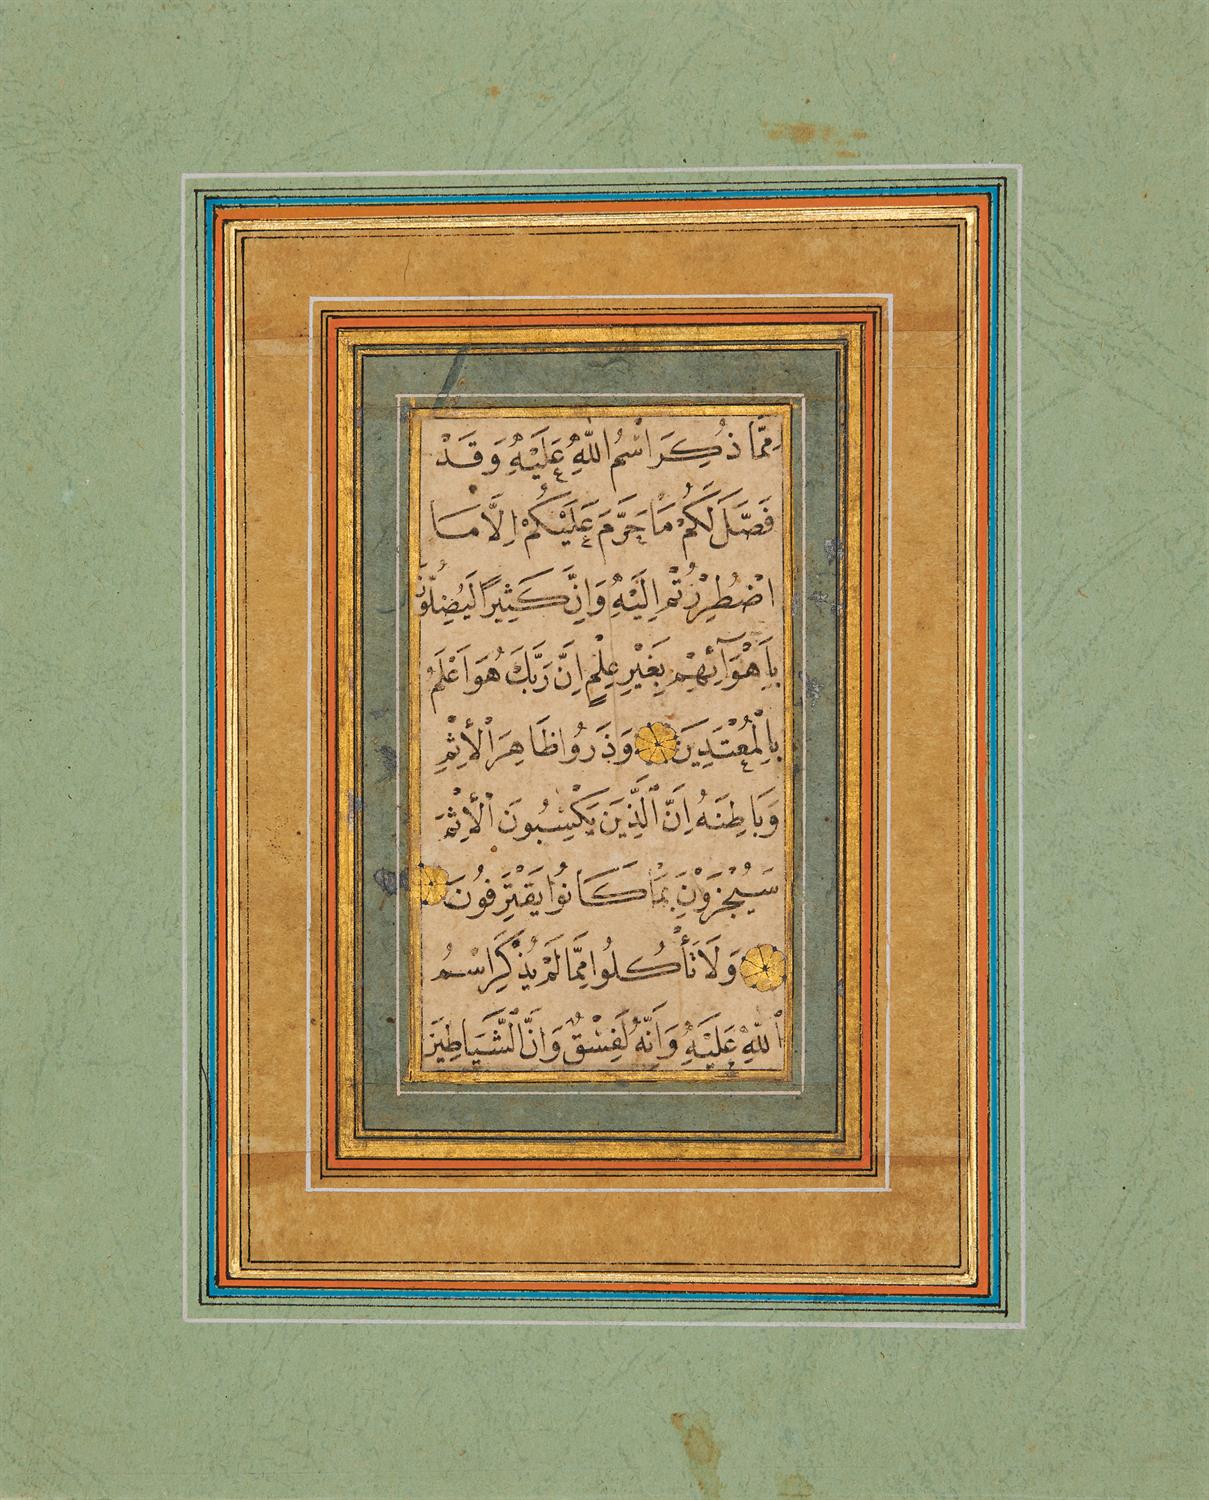 مِمَّا ذُكِرَ اسْمُ اللّٰهِ عَلَيْهِ وَقَدْ
فَصَّلَ لَكُمْ مَا حَرَّمَ عَلَيْكُمْ اِلَّا مَا
اضْطُرِرْتُمْ اِلَيْهِ وَاِنَّ كَثِيرًا لَيُضِلُّونَ
بِاَهْوَآئِهِمْ بِغَيْرِ عِلْمٍ اِنَّ رَبَّكَ هُوَ اَعْلَمُ
بِالْمُعْتَدِينَ وَذَرُوا ظَاهِرَ الْاِثْمِ
وَبَاطِنَهُ اِنَّ الَّذِينَ يَكْسِبُونَ الْاِثْمَ
سَيُجْزَوْنَ بِمَا كَانُوا يَقْتَرِفُونَ
وَلَا تَأْكُلُوا مِمَّا لَمْ يُذْكَرِ اسْمُ
اللّٰهِ عَلَيْهِ وَاِنَّهُ لَفِسْقٌ وَاِنَّ الشَّيَاطِينَ